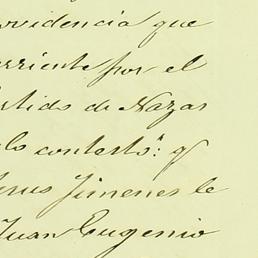 ovidencia que
orriente por el
artido de Nazas
lo contestó": y
esus Jimenes le
Juan Eugenio